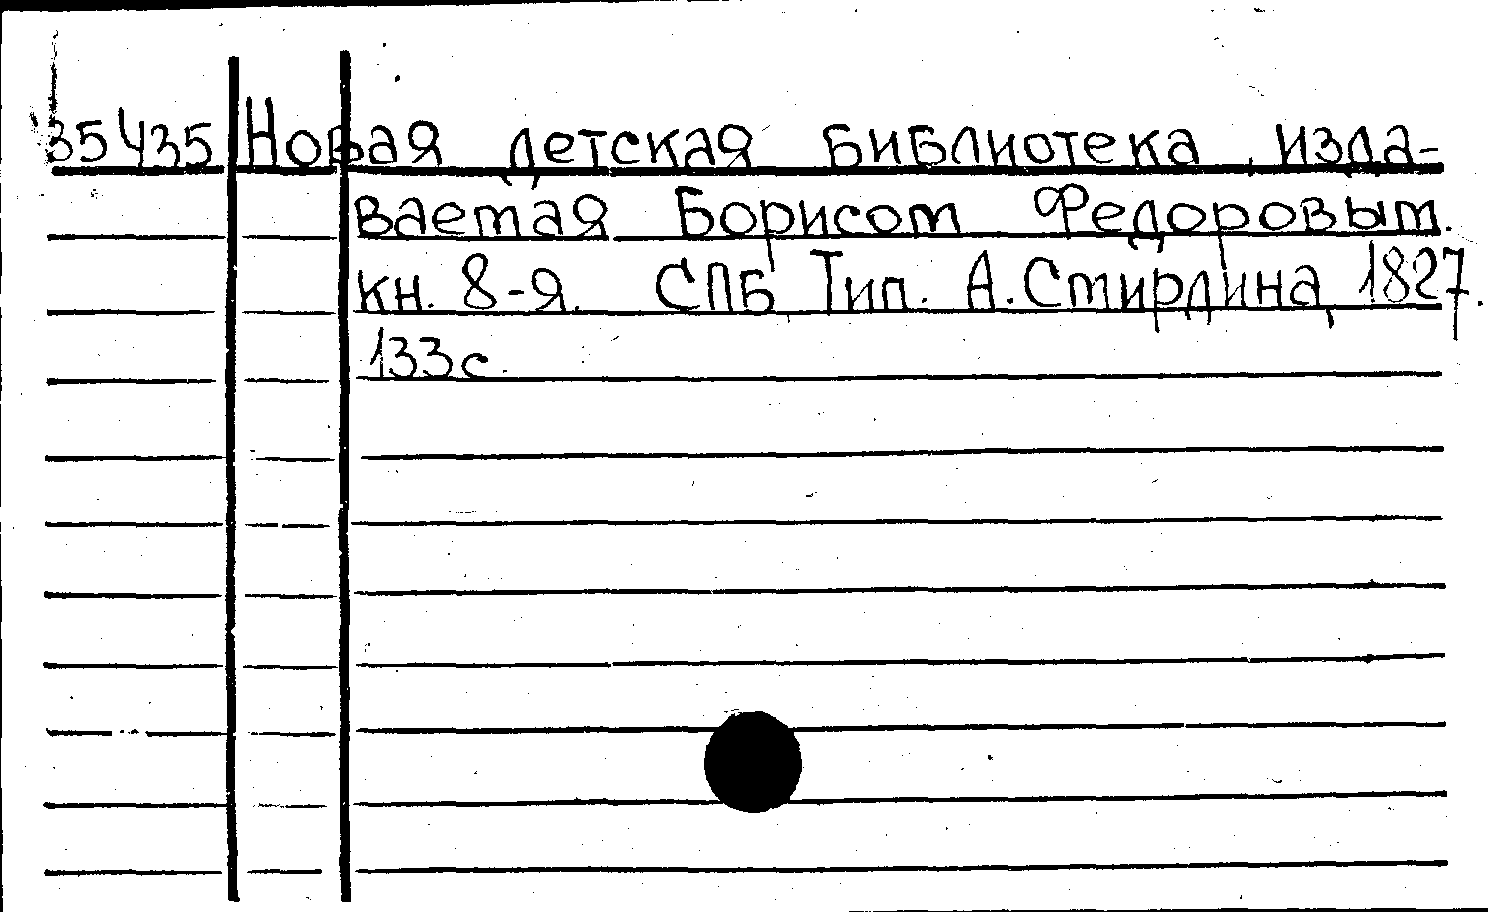 35435 Новая детская библиотека, изда-
ваемая Борисом Федоровым.
кн. 8-я. СПБ Тип. А. Смирдина, 1827.
133с.